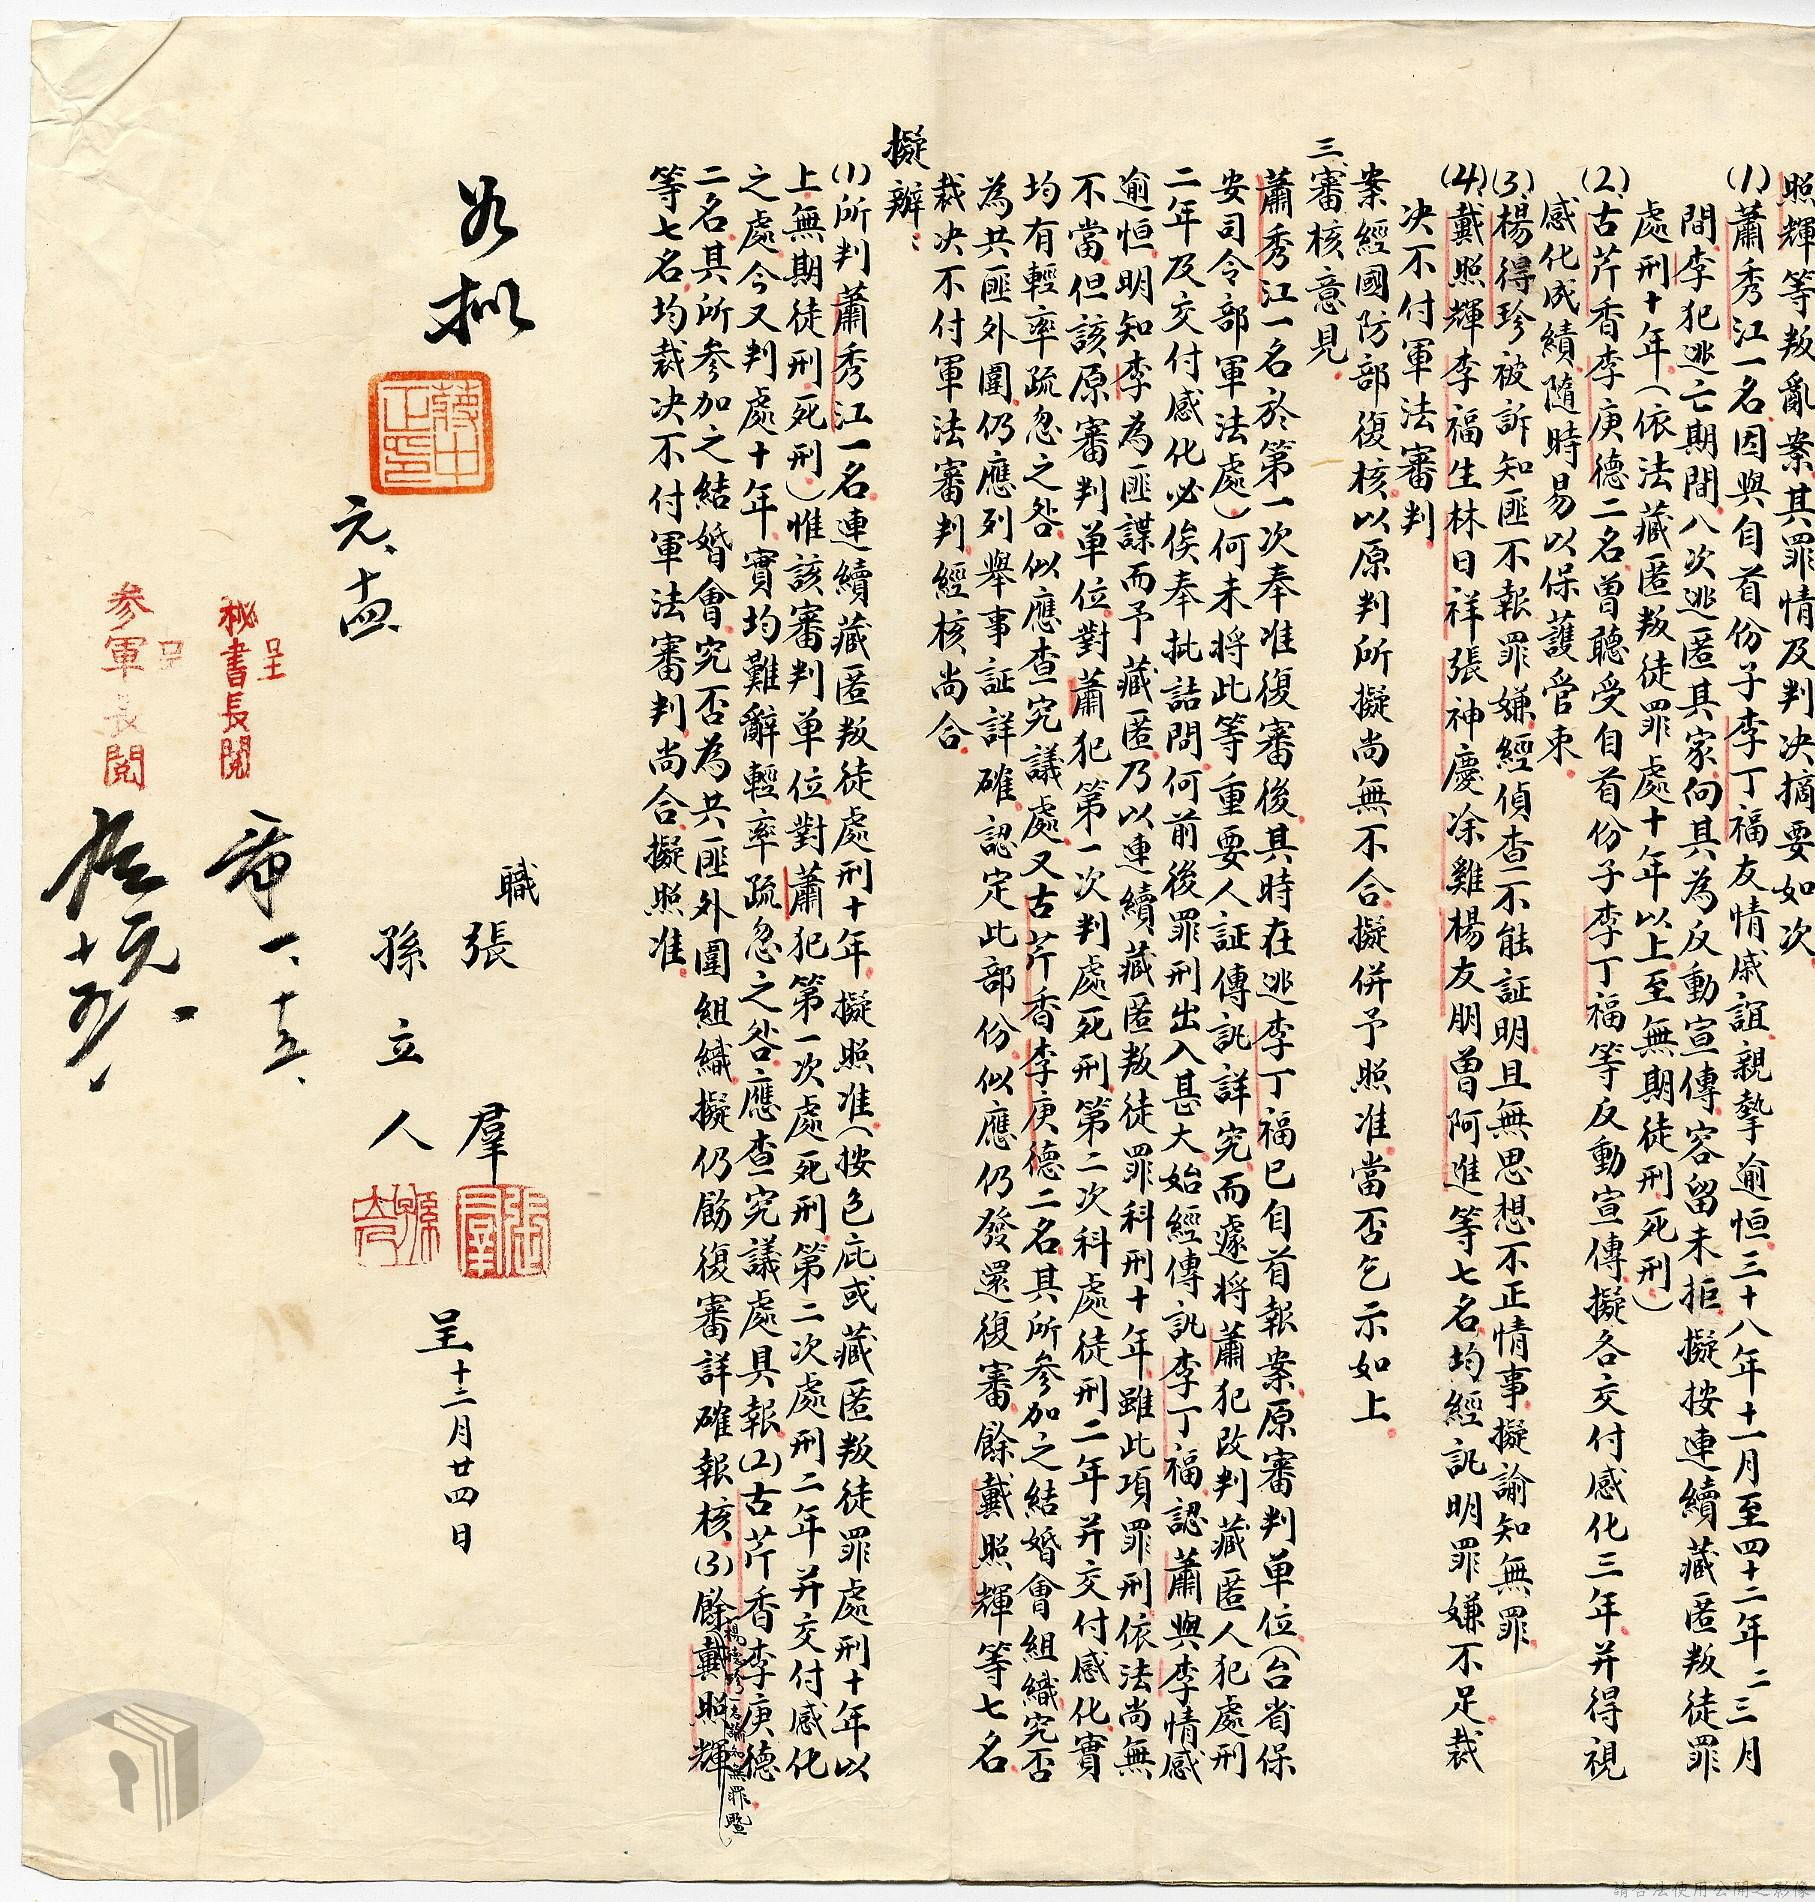 照輝等叛亂案其罪情及判決摘要如次
(1)蕭秀江一名因與自首份子李丁福友情戚誼親摯逾恒三十八年十一月至四十二年二三月
間李犯逃亡期間八次逃匿其家向其為反動宣傳容留未拒擬按連續藏匿叛徒罪
處刑十年(依法藏匿叛徒罪處十年以上至無期徒刑死刑)
(2)古芹香李庚德二名曾聽受自首份子李丁福等反動宣傳擬各交付感化三年并得視
感化成績隨時易以保護管束
(3)楊得珍被訴知匪不報罪嫌經偵查不能証明且無思想不正情事擬諭知無罪
(4)戴照輝李福生林日祥張神慶凃雞楊友朋曾阿進等七名均經訊明罪嫌不足裁
決不付軍法審判
案經國防部復核以原判所擬尚無不合擬併予照准當否乞示如上
三、審核意見
蕭秀江一名於第一次奉准復審後其時在逃李丁福已自首報案原審判单位(台省保
安司令部軍法處)何未將此等重要人証傳訊詳究而遽將蕭犯改判藏匿人犯處刑
二年及交付感化必俟奉批詰問何前後罪刑出入甚大始經傳訊李丁福認蕭與李情感
逾恒明知李為匪諜而予藏匿乃以連續藏匿叛徒罪科刑十年雖此項罪刑依法尚無
不當但該原審判单位對蕭犯第一次判處死刑第二次科處徒刑二年并交付感化實
均有輕率疏忽之咎似應查究議處又古芹香李庚德二名其所參加之結婚會組織究否
為共匪外圍仍應列舉事証詳確認定此部份似應仍發還復審餘戴照輝等七名
裁决不付軍法審判經核尚合
擬辦：
(1)所判蕭秀江一名連續藏匿叛徒處刑十年擬照准(按包庇或藏匿叛徒罪處刑十年以
上無期徒刑死刑)惟該審判单位對蕭犯第一次處死刑第二次處刑二年并交付感化
之處今又判處十年實均難辭輕率疏忽之咎應查究議處具報(2)古芹香李庚德
二名其所參加之結婚會究否為共匪外圍組織擬仍飭復審詳確報核(3)餘戴照輝
楊德珍一名諭知無罪暨
等七名均裁决不付軍法審判尚合擬照准
職
張羣
張羣
孫立人
孫立人
呈十二月廿四日
如擬
蔣中正印
元、十四、
呈
秘書長閱
一、十五、
呈
參軍長閱
元、十五、
請合法使用公開之影像